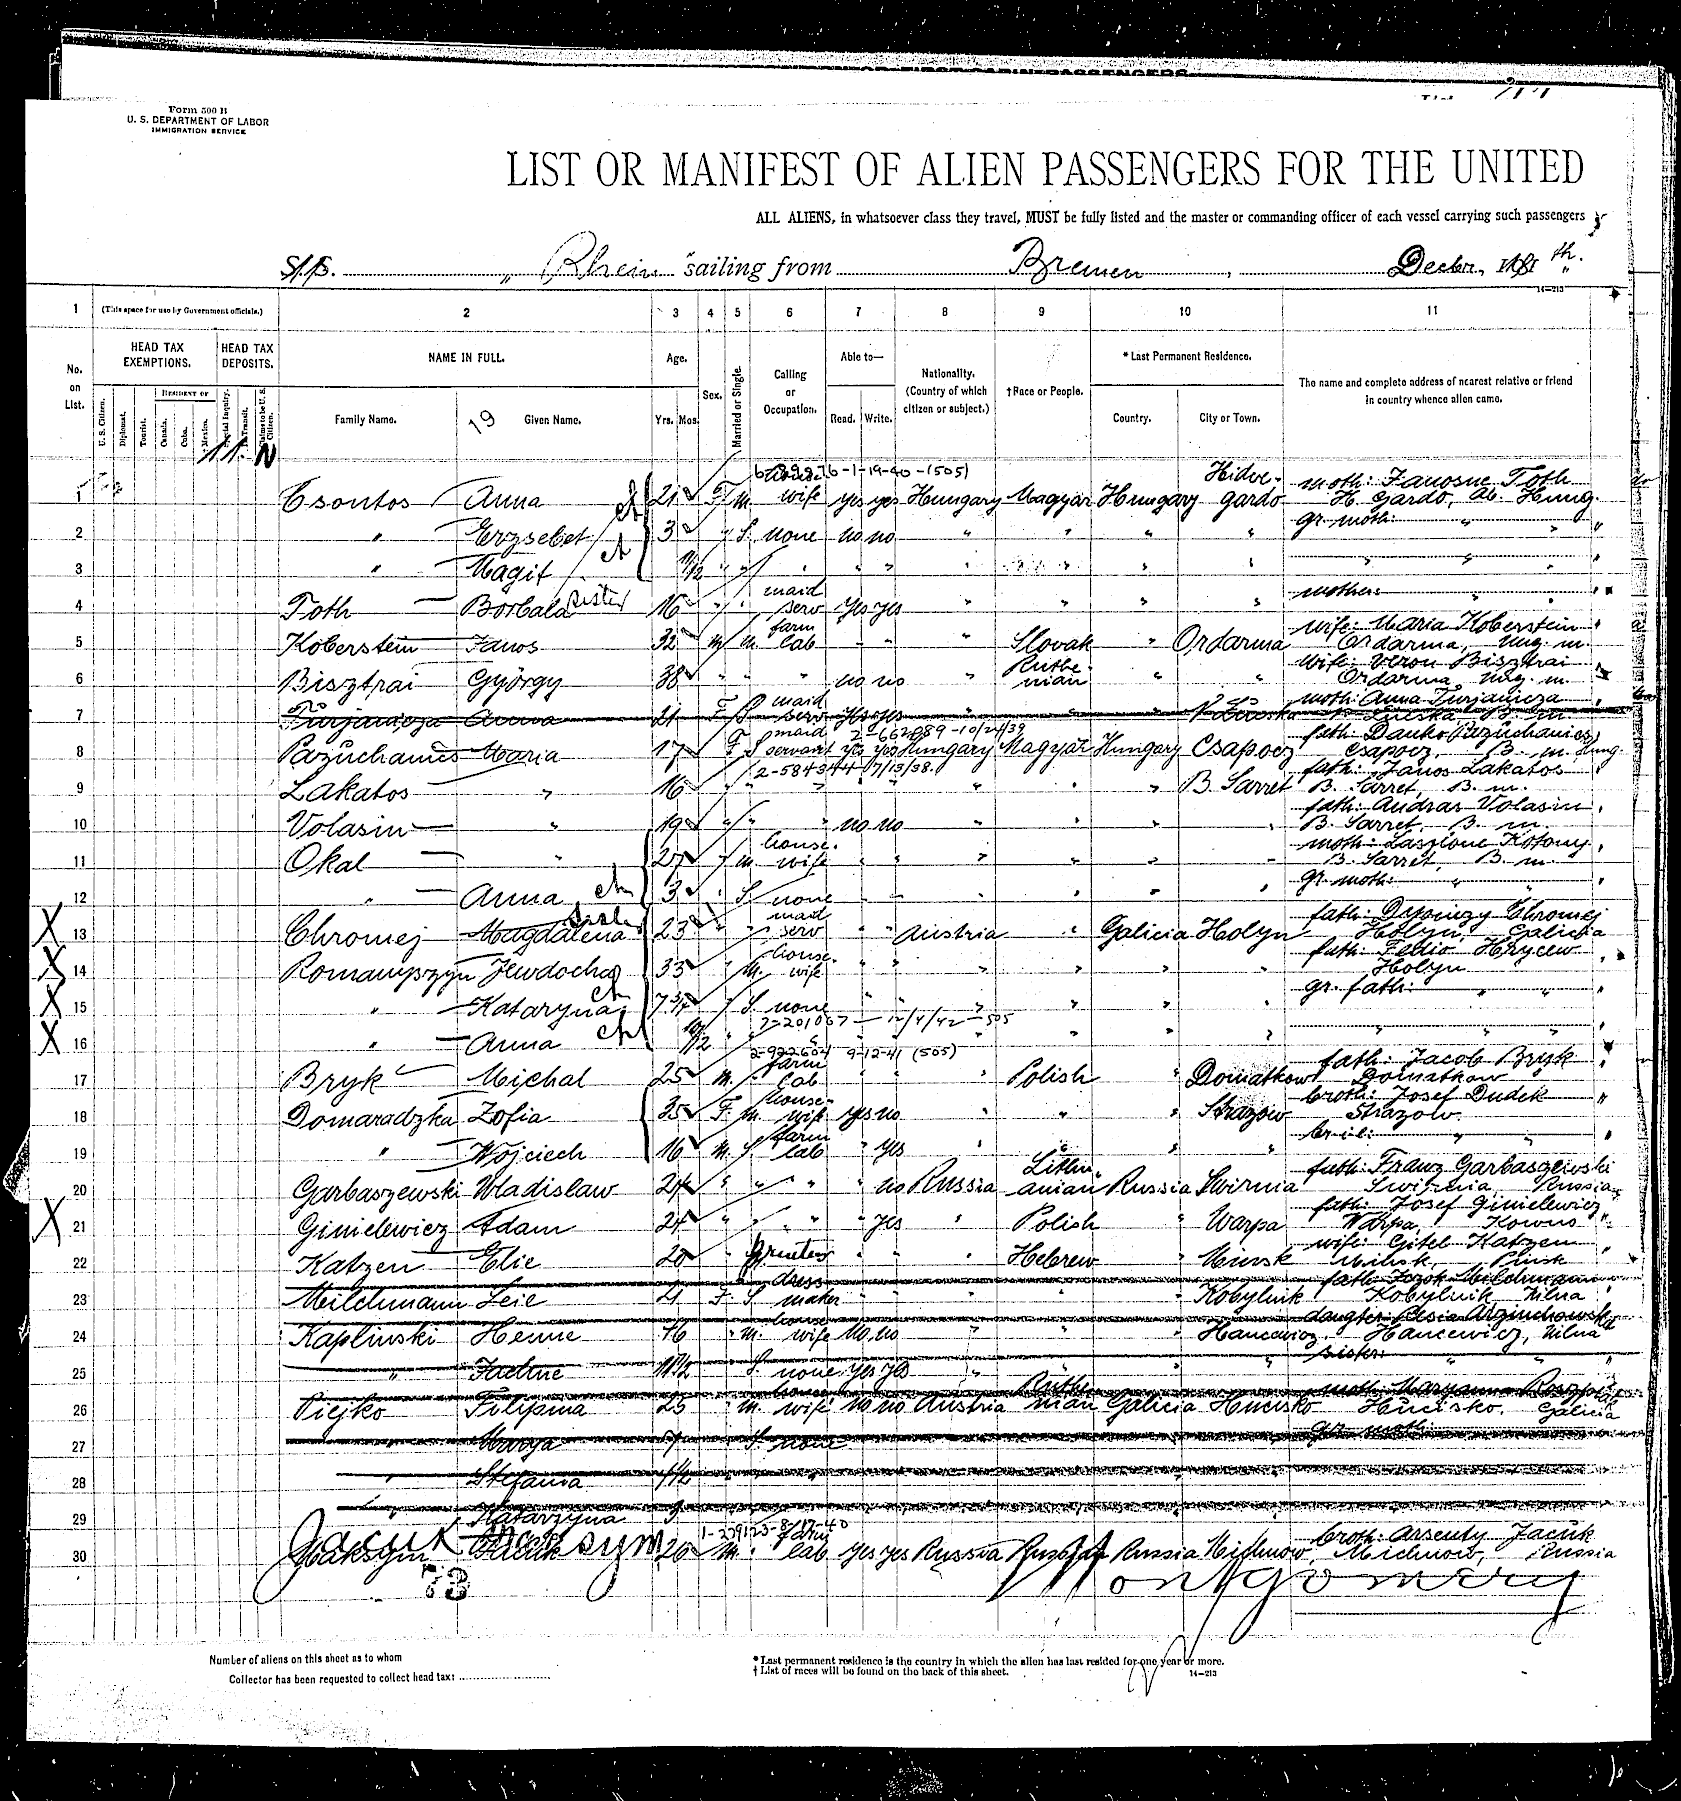 Form 500 B
U. S. DEPARTMENT OF LABOR
IMMIGRATION SERVICE
LIST OR MANIFEST OF ALIEN PASSENGERS FOR THE UNITED
ALL ALIENS, in whatsoever class they travel, MUST be fully listed and the master or commanding officer of each vessel carrying such passengers
S.S. „ Rhein" sailing from Bremen , Decbr. 18th.
14—213
1 (This space for use by Government officials.) 2 3 4 5 6 7 8 9 10 11
No. on List. HEAD TAX EXEMPTIONS. HEAD TAX DEPOSITS. NAME IN FULL. Age. Sex. Married or Single. Calling or Occupation. Able to— Nationality. (Country of which citizen or subject.) †Race or People. *Last Permanent Residence. The name and complete address of nearest relative or friend in country whence alien came.
U.S. Citizen. Diplomat. Tourist. RESIDENT OF Canada. Cuba. Mexico. Special Inquiry. In Transit. Family Name. 19 Given Name. Yrs. Mos. Read. Write. Country. City or Town.
1 Csontos Anna 21 F. m. wife yes yes Hungary Magyar Hungary Hidvegardo moth: Janosne Toth H. Gardo, Ab. Hung.
2 " Erzsebet 3 " S. none no no " " " " gr. moth: " "
3 " Magit 11/12 " " " " " " " " "
4 Toth Borbala sister 16 " " maid serv yes yes " " " " mother: " "
5 Koberstein Janos 32 m m. farm lab " " " Slovak " Ordarma wife: Maria Koberstein Ordarma, Ung. m.
6 Bisztrai György 38 " " " no no " Ruthenian " " wife: Veron Bisztrai Ordarma, Ung. m.
7 Turjanicza Anna 21 F S maid serv yes yes " " " moth: Anna Turjanicza
8 Pazuchanics Maria 17 F S maid servant yes yes Hungary Magyar Hungary Csapocz fath: Danko Pazuchanics Csapocz, B. m. Hung.
2-584344 7/13/38.
9 Lakatos " 16 " " " " " " " " B. Sarret fath: Janos Lakatos B. Sarret, B. m.
10 Volasin " 19 " " " no no " " " " fath: Andras Volasin B. Sarret, B. m.
11 Okal " 27 " m. house-wife " " " " " " moth: Laszlone Kotony B. Sarret, B. m.
12 " Anna 3 " S. none " " " " " " gr. moth: " "
X 13 Chromej Magdalena 23 " " maid serv " " Austria " Galicia Holyn fath: Chromej Holyn, Galicia
X 14 Romanyszyn Jewdocha 33 " m. house-wife " " " " " " fath: Fedio Hrycew Holyn
X 15 " Kataryna 7 " S. none " " " " " " gr. fath: " "
X 16 " Anna " " " " " " " "
2-922604 9-12-41 (505)
17 Bryk Michal 25 m. " farm lab " " " Polish " Domatkow fath: Jacob Bryk Domatkow
18 Domaradzka Zofia 35 F. m. house-wife yes no " " " Strazow broth: Josef Dudek Strazow
19 " Wojciech 16 m. S. farm lab " yes " " " " " "
20 Garbaszewski Wladislaw 24 " " " " no Russia Lithuanian Russia Swirnia fath: Franz Garbaszewski Swirnia Russia
X 21 Ginielewicz Adam 24 " " " " yes " Polish " Warpa fath: Josef Ginielewicz Warpa, Kowno
22 Katzen Elie 20 " " " " " Hebrew " Minsk wife: Gitel Katzen Minsk,
23 Milchmann Leie 21 F. S dress maker " " " " " Kobylnik fath: Milchmann Kobylnik Vilna
24 Kaplinski Henne 46 " m. house wife no no " " " Hancewicz daughter: Hancewicz, Vilna
25 " 11 " S. none yes yes " " " " sister: " "
26 Piejko Filipina 25 " m. house wife no no Austria Ruthenian Galicia Hucisko moth: Maryanna Hucisko. Galicia
27 " Marya " S. none gr. moth:
28 " Stefania
29 " Katarzyna
1-229123-8/17-40
Jacuk Maksym
30 Maksym Jacuk 26 m. " farm lab yes yes Russia Russia Michnow broth: Arsenty Jacuk Michnow, Russia
73 Montgomery
Number of aliens on this sheet as to whom
Collector has been requested to collect head tax:
* Last permanent residence is the country in which the alien has last resided for one year or more.
† List of races will be found on the back of this sheet.
14—213